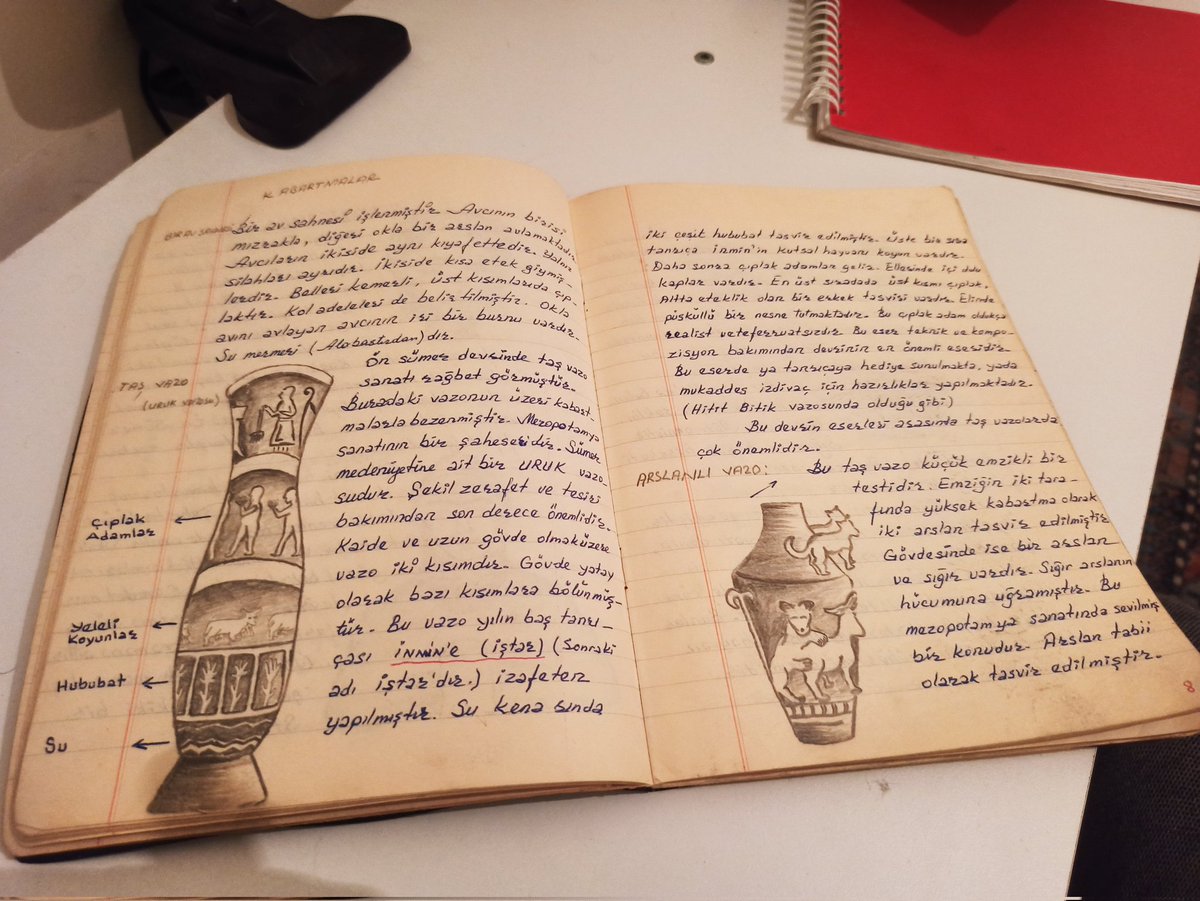 KABARTMALAR
BİR AV SAHNESİ
Bir av sahnesi işlenmiştir. Avcının birisi
mızrakla, diğeri okla bir arslan avlamaktadır.
Avcıların ikiside aynı kıyafettedir. Yalnız
silahları ayrıdır. İkiside kısa etek giymiş-
lerdir. Belleri kemerli, üst kısımlarıda çıp-
laktır. Kol adeleleri de belirtilmiştir. Okla
avını avlayan avcının iri bir burnu vardır.
Su mermeri (Alabastırdan) dır.
TAŞ VAZO
(URUK VAZOSU)
Ön sümer devrinde taş vazo
sanatı rağbet görmüştür.
Buradaki vazonun üzeri kabart-
malarla bezenmiştir. Mezopotamya
sanatının bir şaheseridir. Sümer
medeniyetine ait bir URUK vazo-
sudur. Şekil zerafet ve tesiri
bakımından son derece önemlidir.
Kaide ve uzun gövde olmaküzere
vazo iki kısımdır. Gövde yatay
olarak bazı kısımlara bölünmüş-
tür. Bu vazo yılın baş tanrı-
çası İNNİN'E (İştar) (Sonraki
adı İştar'dır.) izafeten
yapılmıştır. Su kena sında
Çıplak
Adamlar
Yeleli
Koyunlar
Hububat
Su
iki çeşit hububat tasvir edilmiştir. Üste bir sıra
tanrıça İnnin'in kutsal hayvanı koyun vardır.
Daha sonra çıplak adamlar gelir. Ellerinde içi dolu
kaplar vardır. En üst sıradada üst kısmı çıplak,
Altta eteklik olan bir erkek tasviri vardır. Elinde
püsküllü bir nesne tutmaktadır. Bu çıplak adam oldukça
realist veteferruatsızdır. Bu eser teknik ve kompo-
zisyon bakımından devrinin en önemli eseridir.
Bu eserde ya tanrıçaya hediye sunulmakta, yada
mukaddes izdivaç için hazırlıklar yapılmaktadır.
(Hitit Bitik vazosunda olduğu gibi)
Bu devrin eserleri arasında taş vazolarda
çok önemlidir.
ARSLANLI VAZO:
Bu taş vazo küçük emzikli bir
testidir. Emziğin iki tara-
fında yüksek kabartma olarak
iki arslan tasvir edilmiştir
Gövdesinde ise bir arslan
ve sığır vardır. Sığır arslanın
hücumuna uğramıştır. Bu
mezopotamya sanatında sevilmiş
bir konudur. Arslan tabii
olarak tasvir edilmiştir.
8